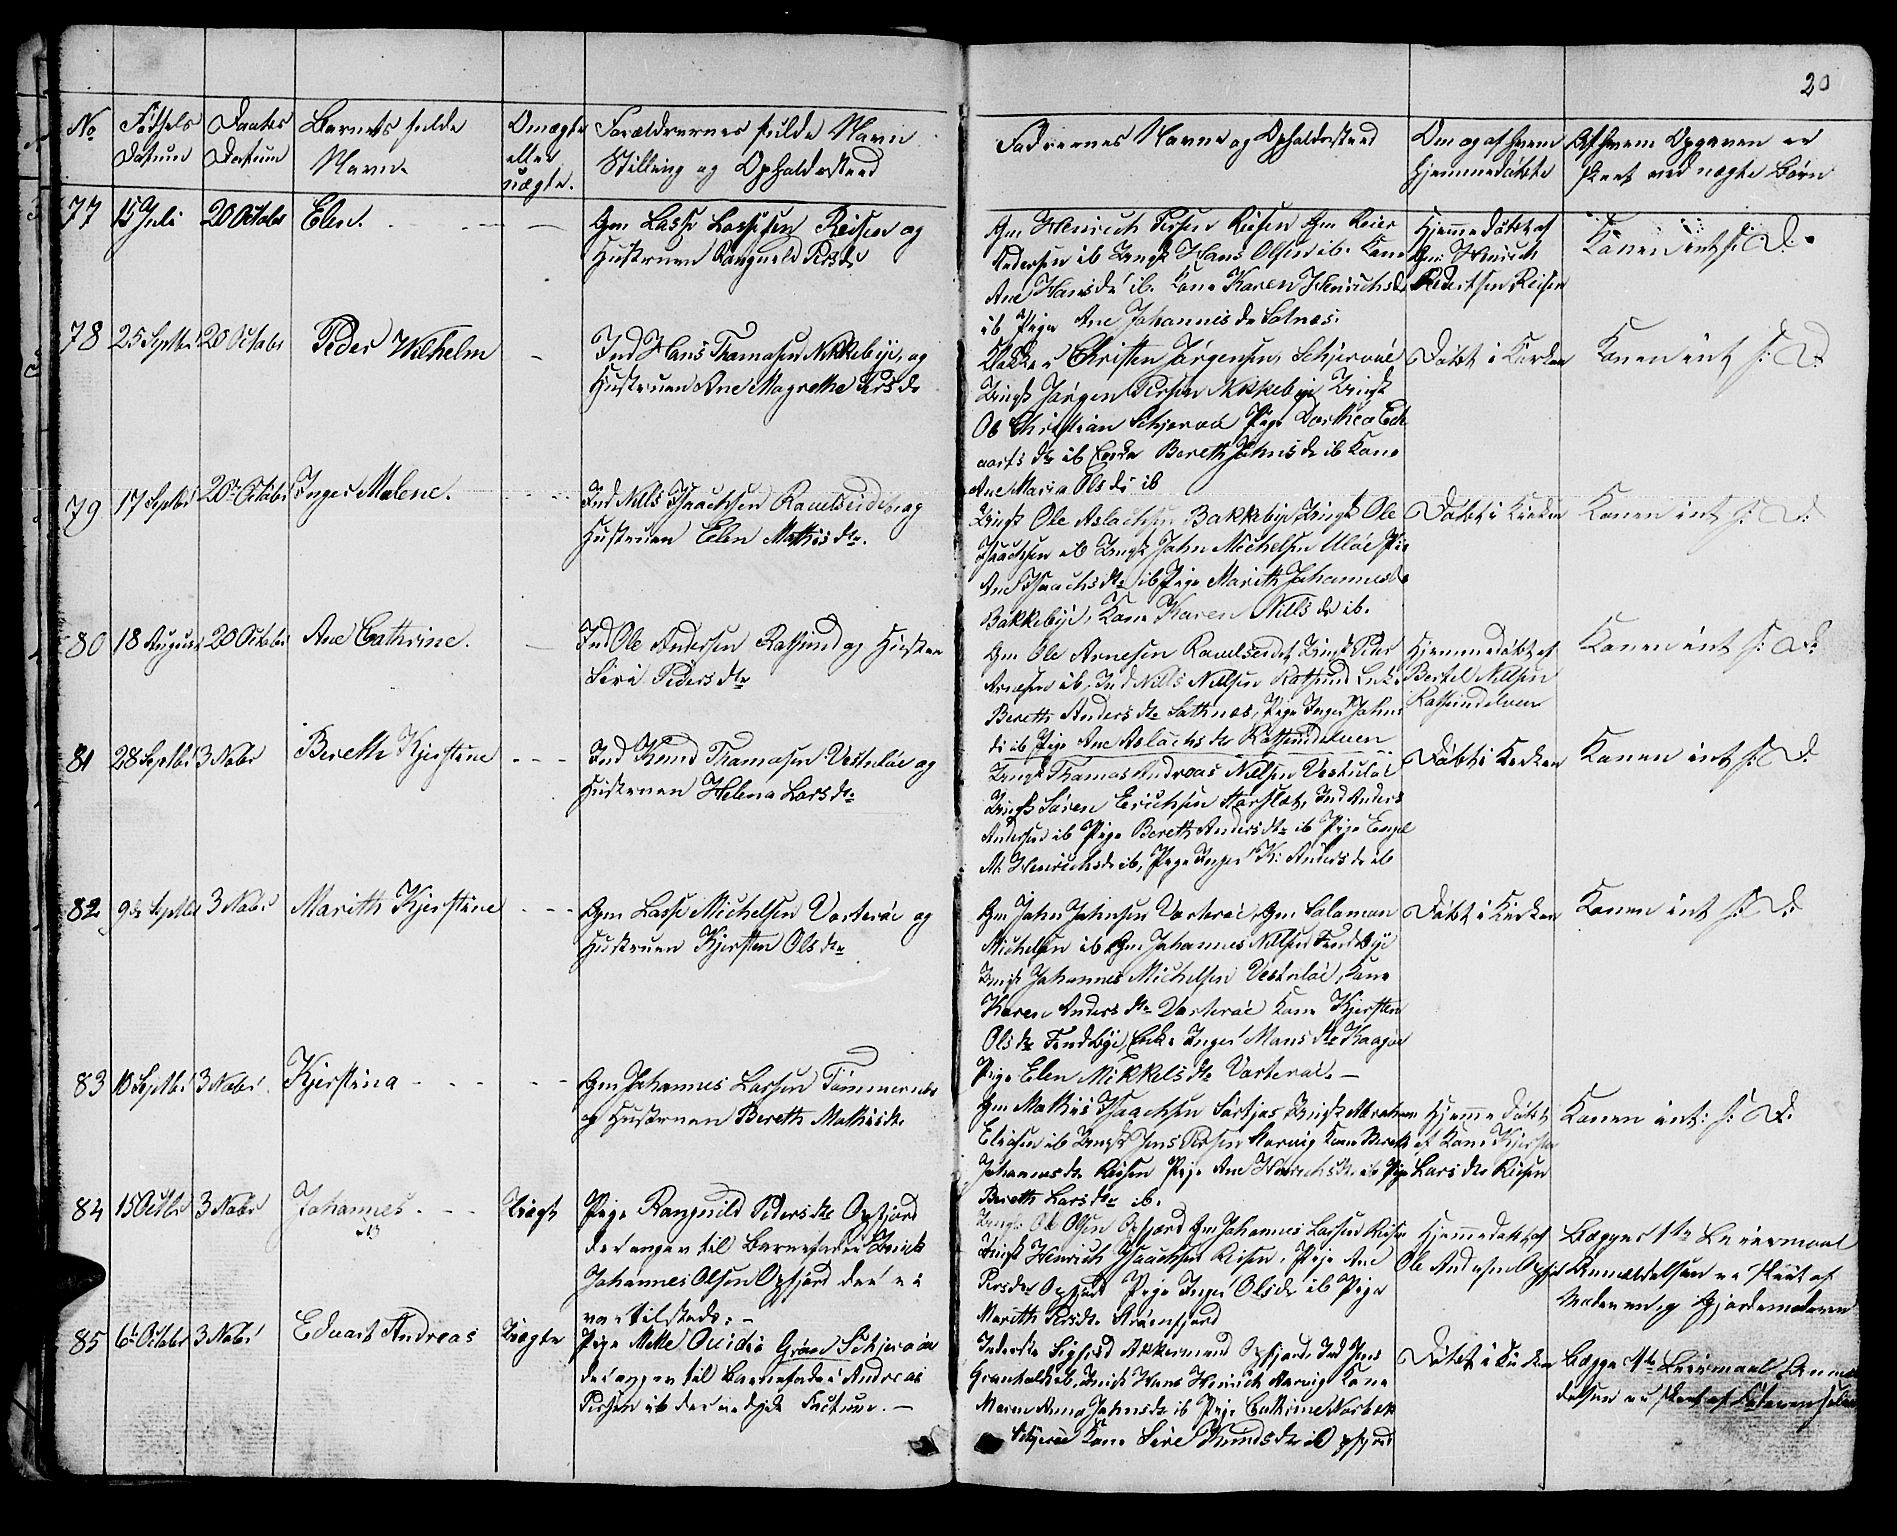 20
No
Fødsels Datum
Daabs Datum
Barnets fulde Navn.
Om ægte eller uægte.
Forældrernes fulde Navn
Stilling og Opholdssted
Fadrernes Navne og Opholdssted
Om og af hvem hjemmedøbte
Af hvem Opgaven er
skeet ved uægte Børn
77 15 Juli 20 October Elen.
Gm Lasse Lassesen Reisen og
Hustruen Ranguild Persdr
Gm Henrich Persen Reisen Gm Reier
Andersen ib Ungk Hans Olsen ib. Kone
Ane Hansdr ib. Kone Karen Henrichsdr
ib Pige Ane Johannisdr Solnæs.
Hjemmedøbt af
Gm Henrich
Pedersen Reisen
Konen int. s: D.
78 25 Septbr 20 October Peder Wilhelm
Ind Hans Thomasen Nikkebye, og
Hustruen Ane Magrethe Persdr
Klokker Christen Jørgensen, Schjervøe
Ungk Jørgen Persen Nikkebye Ungk
Ob Christian Schjervøe Pige Dorthea Ed
varts dtr ib Enke Bereth Johnisdr ib Kone
Ane Maria Olsdr ib
Døbt i Kirken
Konen int s: D.
79 17 Septbr 20de Octobr Inger Malene.
Ind Nils Isaachsen Ravelseidet og
Hustruen Elen Mathisdtr.
Ungk Ole Aslachsen Bakkebye Ungk Ole
Isaachsen ib Ungk John Michelsen Uløe Pige
Ane Isaachsdtr ib Pige Marith Johannesdr
Bakkebye, Kone Karen Nilsdr ib.
Døbt i Kirken
Konen int s: D:
80 18 August 20 October Ane Cathrine.
Ind Ole Andersen Rotsund og Hustru
Siri Pedersdtr
Gm Ole Arnesen Ravelseidet, Ungk Peder
Arnesen ib, Ind Nils Nilsen Rotsund Enke
Bereth Andersdtr Sathnæs, Pige Inger Johns
dr ib Pige Ane Aslachsdtr Rotsundelven
Hjemmedøbt af
Bertel Nilsen
Rotsundelven
Konen int s: D:
81 28 Septbr 3 Nobr Bereth Kjerstine
Ind Knud Thomasen Vestuløe og
Hustruen Helena Larsdtr
Ungk Thomas Andreas Nilsen Vestuløe
Ungk Søren Erichsen Storslet, Ind Anders
Andersen ib Pige Bereth Andersdtr ib Pige Engel
M. Henrichsdr ib, Pige Inger K: Andersdr ib
Døbt i Kirken
Konen int s: D.
82 9de Septbr 3 Nobr Marith Kjerstine
Gm Lasse Michelsen Vorterøe og
Hustruen Kjersten Olsdtr
Gm John Johnsen Vorterøe, Gm Salamon
Michelsen ib Gm Johannes Nilsen Findbye
Ungk Johannes Michelsen Vestuløe, Kone
Karen Andersdtr Vorterøe Kone Kjersten
Olsdtr Findbye, Enke Inger Mansdtr Kaagen
Pige Elen Mikkelsdtr Vorterøe.
Døbt i Kirken
Konen int s: D.
83 10 Septbr 3 Nobr Kjerstina
Gm Johannes Larsen Tømmernæs
og Hustruen Bereth Mathisdtr.
Gm Mathis Isaachsen Sørkjos, Ungk Abraham
Eliasen ib Ungk Jens Persen Marvig Kone Bereth
Johannesdtr Reisen Pige Ane Henrichsdtr ib Pige
Bereth Larsdtr ib.
Hjemmedøbt
af Kone Kjersten
Larsdtr Reisen
Konen int: s: D.
84 15 Octbr 3 Nobr Johannes Uægt
Pige Ranguild Pedersdtr Oxfjord
der angav til Barnefader Ungk
Johannes Olsen Oxfjord der ei
var tilstede.
Ungk Ole Olsen Oxfjord Gm Johannes Larsen Reisen
Ungk Henrich Isaachsen Reisen, Pige Ane
Persdtr Oxfjord Pige Inger Olsdr ib Pige
Marith Persdtr Straumfjord
Hjemmedøbt af
Ole Andersen Oxfjd
Begges 1ste Leiermaal
Anmeldelsen er skeet af
Moderen og Gjordemoderen
85 6te October 3 Nobr Edvart Andreas Uægte
Pige Mette Ovidia Grøn Schjervøe
der angav til Barnefader Andreas
Persen ib
Inderste Sigfred Akkermand Oxfjord, Ind Jens
Granholdt ib, Ungk Hans Henrich Marvig Kone
Maren Anna Johnsdtr ib Pige Cathrine Norbek
Schjervøe Kone Sire Knudsdtr Oxfjord
Døbt i Kirken
Begges 1ste Leiermaal Anmel
delsen er skeet af Faderen selv